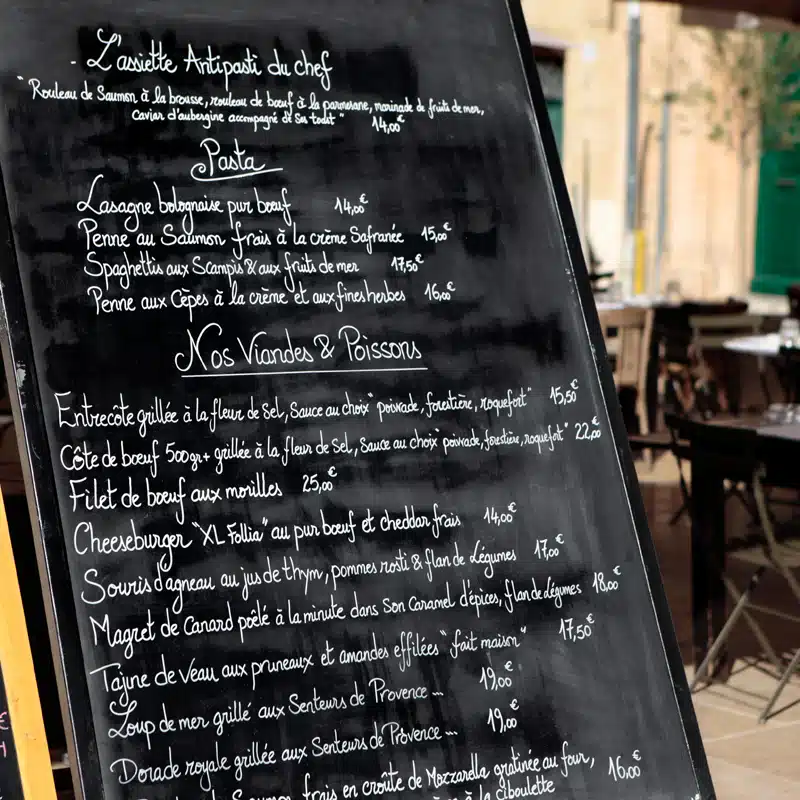 - L'assiette Antipasti du chef
"Rouleau de Saumon à la brousse, rouleau de bœuf à la parmesane, marinade de fruits de mer,
Caviar d'aubergine accompagné de Ses toast" 14,00€
Pasta
Lasagne bolognaise pur bœuf 14,00€
Penne au Saumon frais à la crème Safranée 15,00€
Spaghettis aux Scampis & aux fruits de mer 17,50€
Penne aux Cèpes à la crème et aux fines herbes 16,00€
Nos Viandes & Poissons
Entrecôte grillée à la fleur de Sel, Sauce au choix "poivrade, forestière, roquefort" 15,50€
Côte de bœuf 500gr+ grillée à la fleur de Sel, Sauce au choix "poivrade, forestière, roquefort" 22,00€
Filet de bœuf aux morilles 25,00€
Cheeseburger "XL Follia" au pur bœuf et cheddar frais 14,00€
Souris d'agneau au jus de thym, pommes rosti & flan de Légumes 17,00€
Magret de Canard poêlé à la minute dans Son Caramel d'épices, flan de Légumes 18,00€
Tajine de Veau aux pruneaux et amandes effilées "fait maison" 17,50€
Loup de mer grillé aux Senteurs de Provence ... 19,00€
Dorade royale grillée aux Senteurs de Provence ... 19,00€
Saumon frais en croûte de Mozzarella gratinée au four, 16,00€
à la Ciboulette